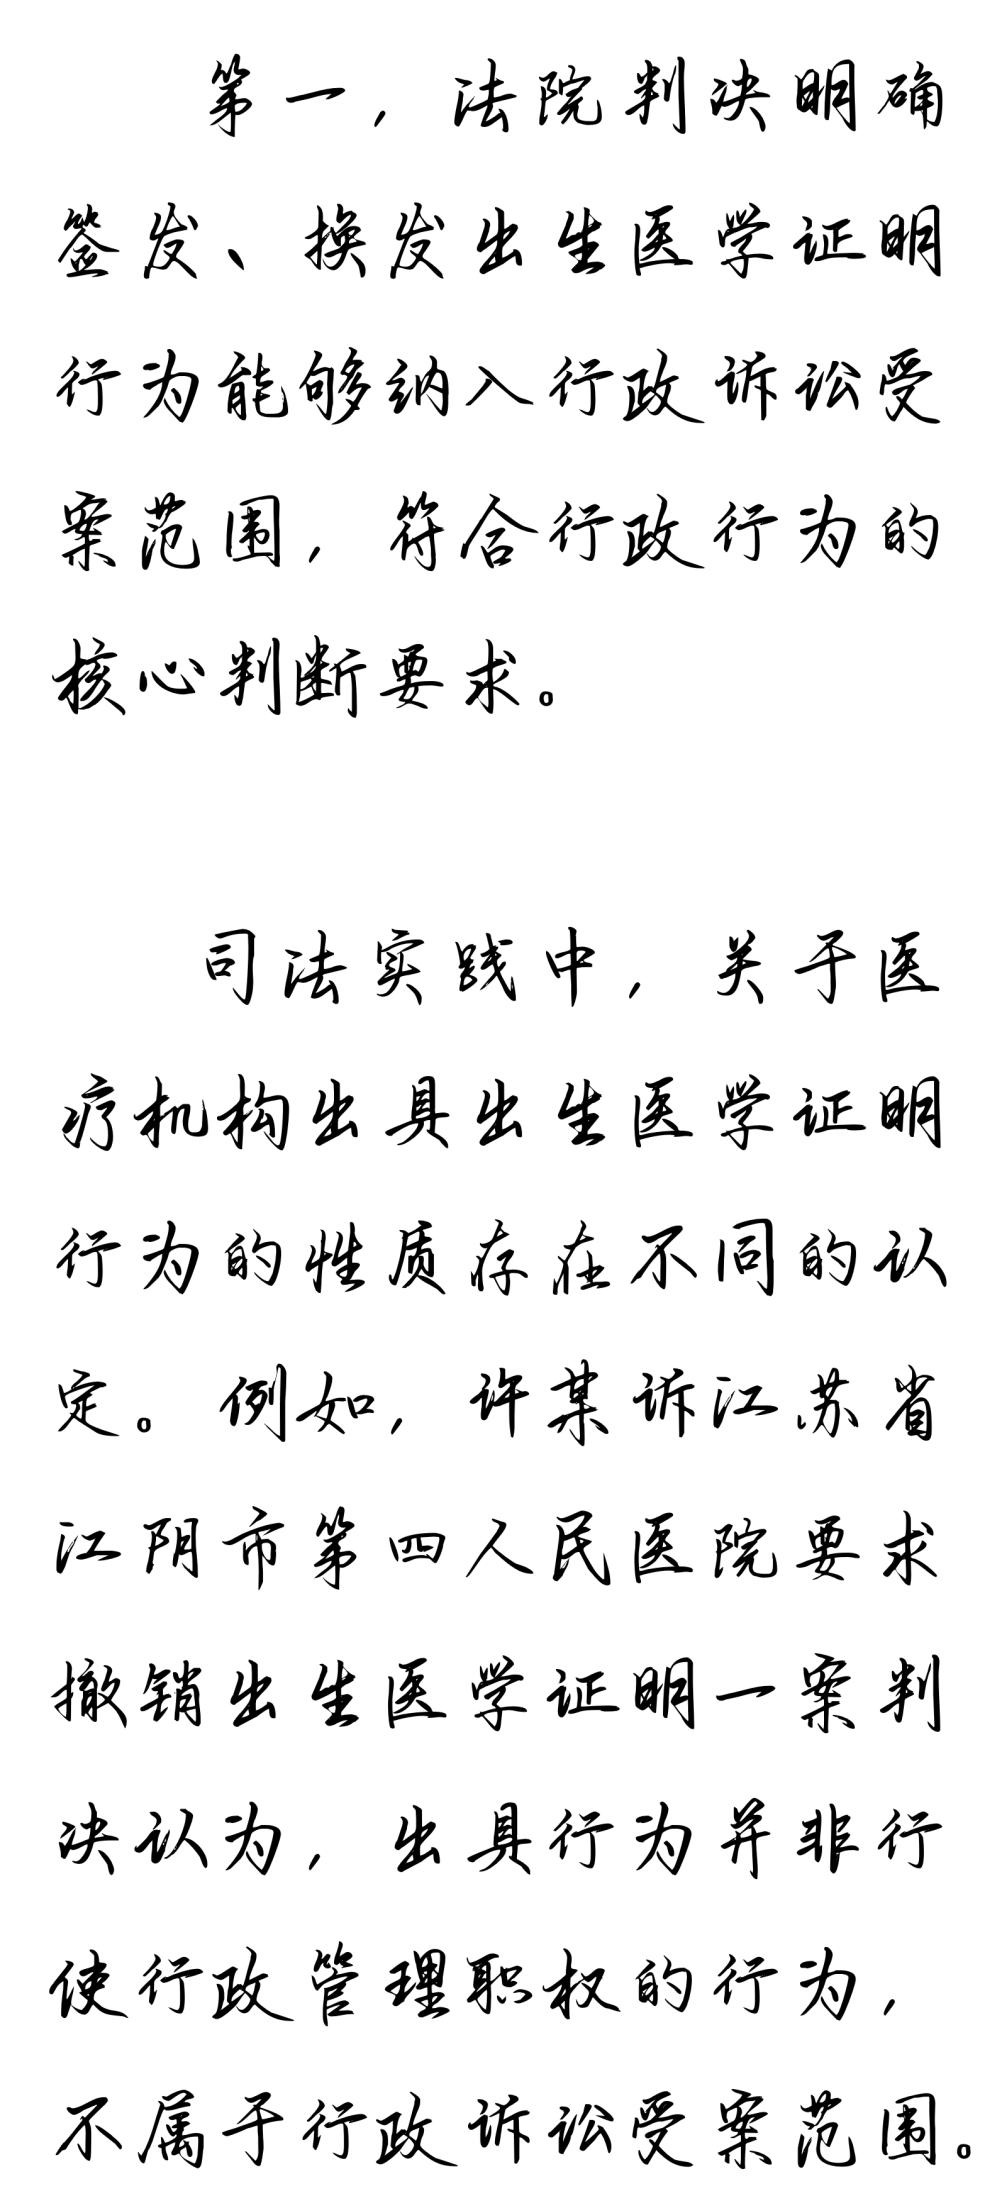 第一，法院判决明确
签发、换发出生医学证明
行为能够纳入行政诉讼受
案范围，符合行政行为的
核心判断要求。
司法实践中，关于医
疗机构出具出生医学证明
行为的性质存在不同的认
定。例如，许某诉江苏省
江阴市第四人民医院要求
撤销出生医学证明一案判
决认为，出具行为并非行
使行政管理职权的行为，
不属于行政诉讼受案范围。